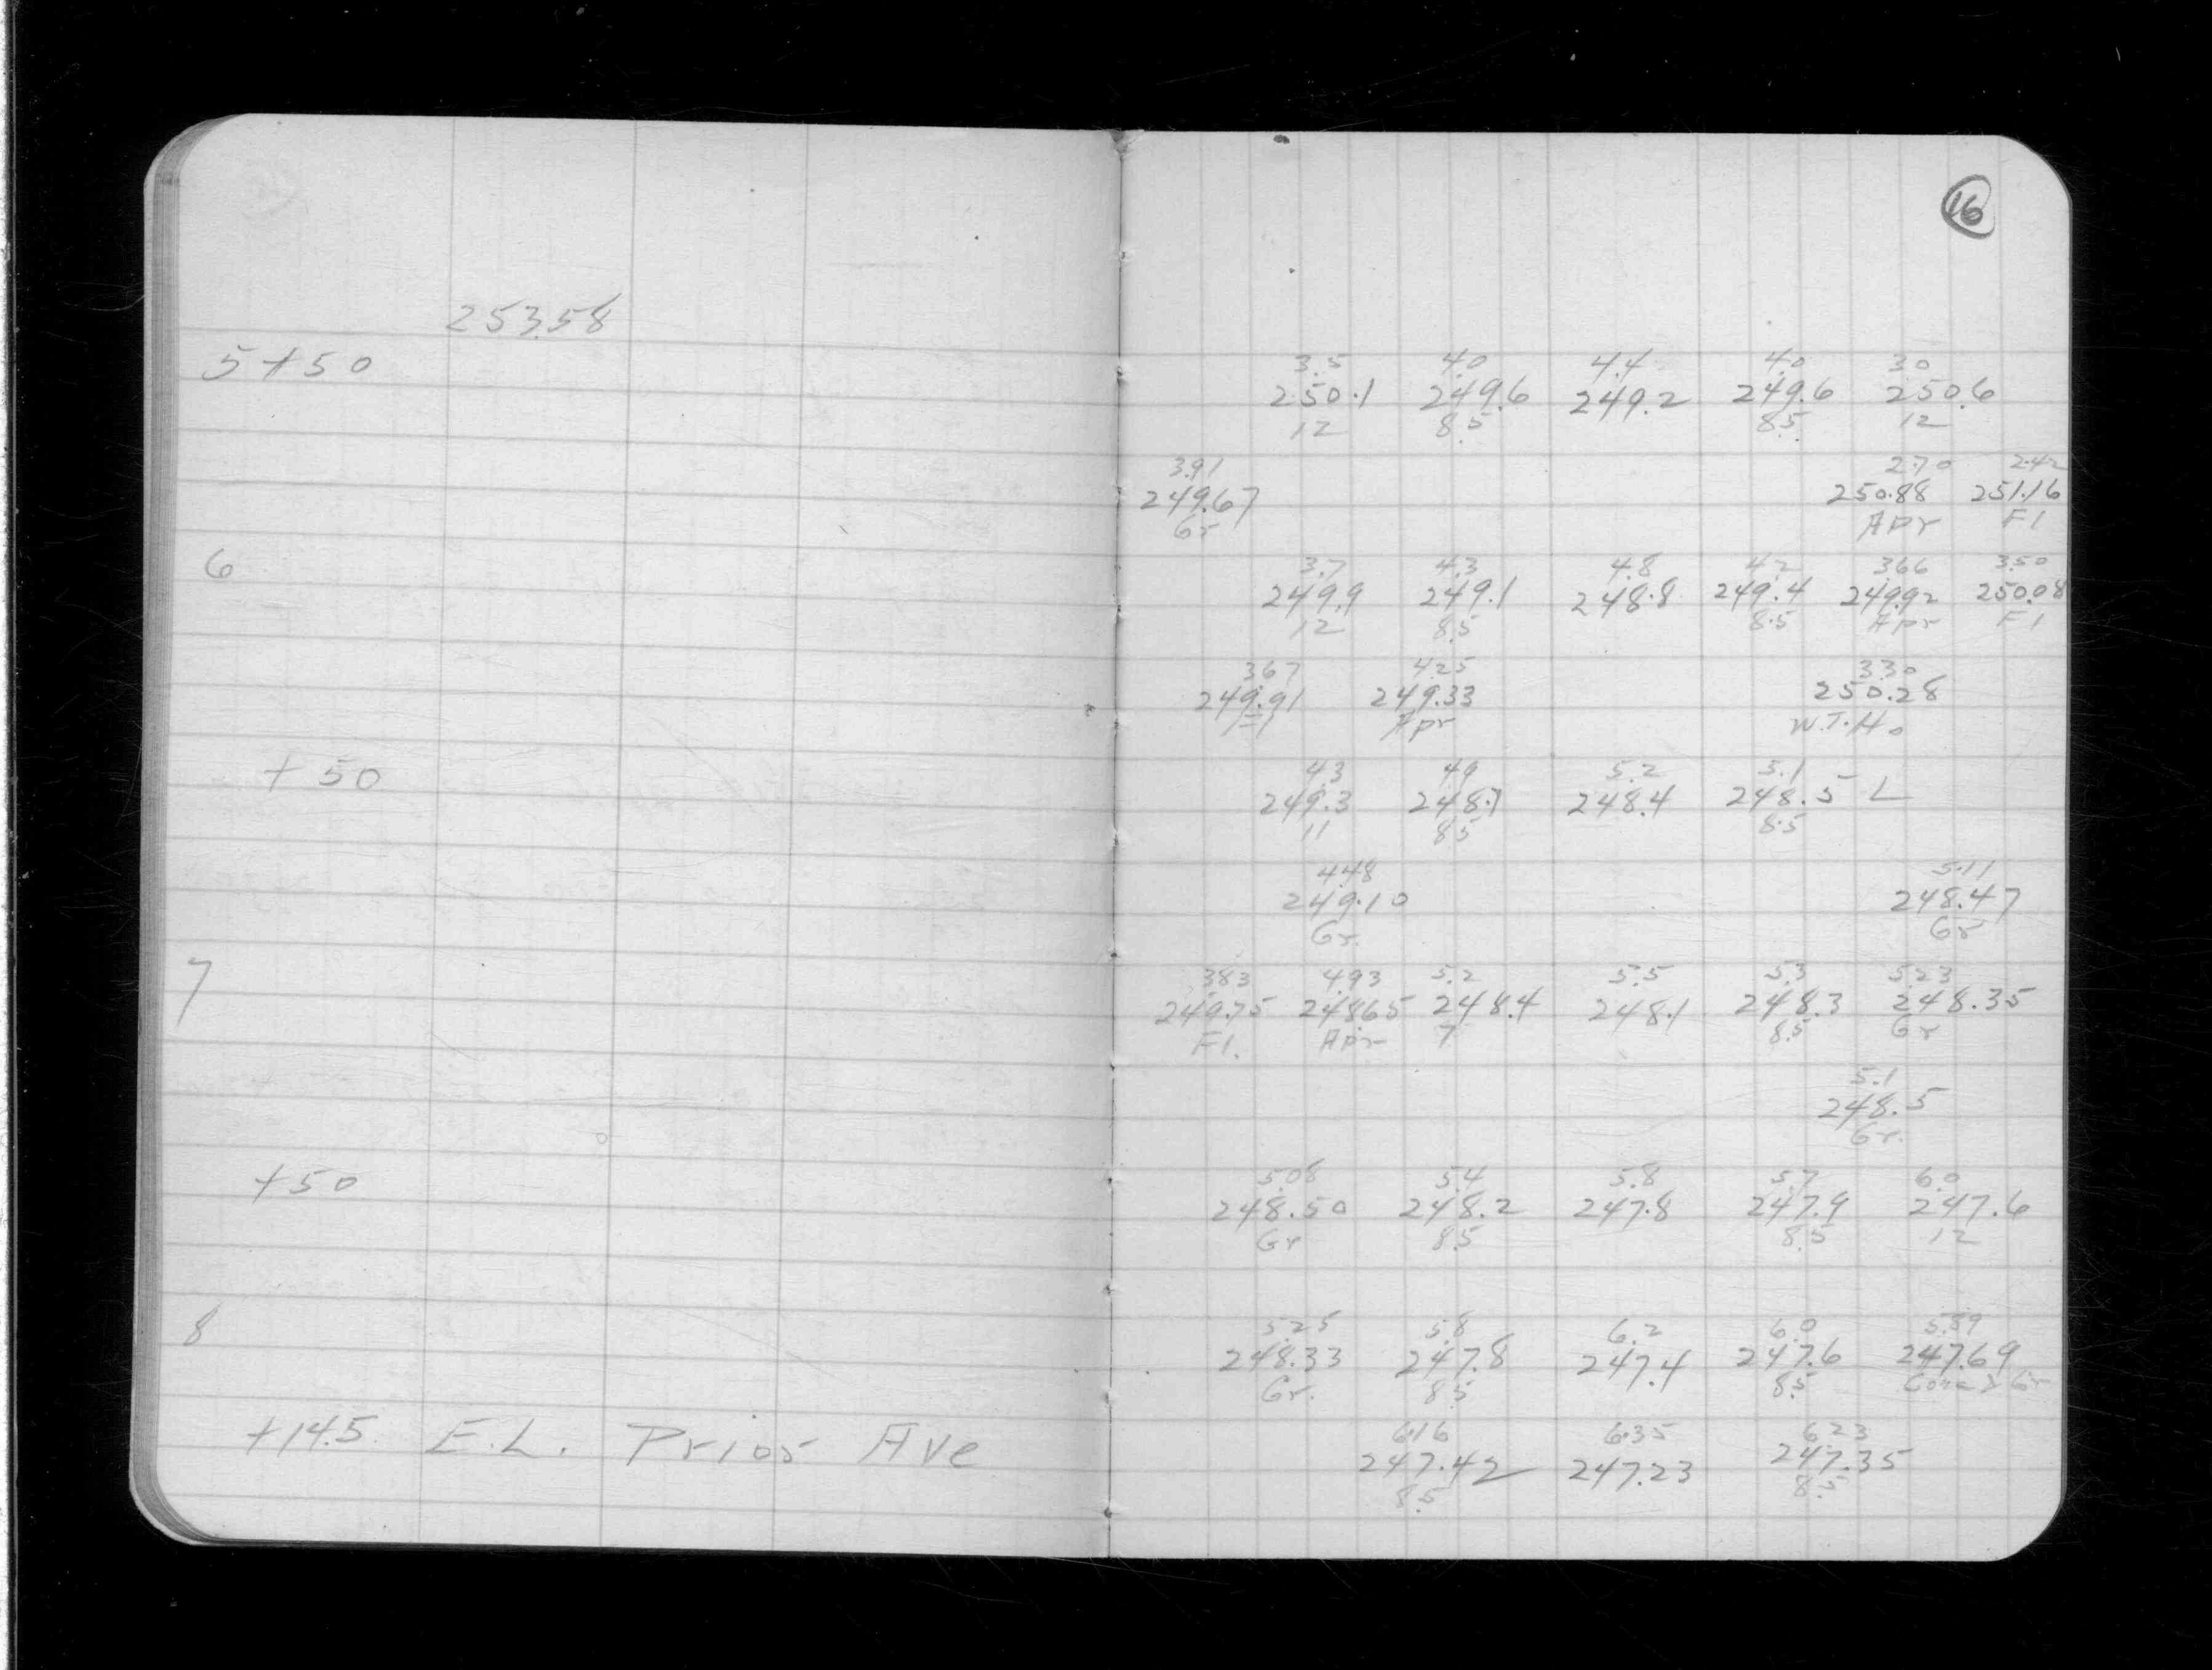 16
253.58
5+50
3.5 4.0 4.4 4.0 3.0
250.1 249.6 249.2 249.6 250.6
12 8.5 8.5 12
3.91 2.70 2.42
249.67 250.88 251.16
Gr Apr Fl
6
3.7 4.3 4.8 4.2 3.66 3.50
249.9 249.1 248.8 249.4 249.92 250.08
12 8.5 8.5 Apr Fl
3.67 4.25 3.30
249.91 249.33 250.28
Fl Apr W.T.H.
+50
4.3 4.9 5.2 5.1
249.3 248.7 248.4 248.5 L
11 8.5 8.5
4.48 5.11
249.10 248.47
Gr. Gr
7
3.83 4.93 5.2 5.5 5.3 5.23
249.75 248.65 248.4 248.1 248.3 248.35
Fl. Apr 7 8.5 Gr
5.1
248.5
Gr.
+50
5.08 5.4 5.8 5.7 6.0
248.50 248.2 247.8 247.9 247.6
Gr 8.5 8.5 12
8
5.25 5.8 6.2 6.0 5.89
248.33 247.8 247.4 247.6 247.69
Gr. 8.5 8.5 Gr
+14.5 E.L. Prior Ave
6.16 6.35 6.23
247.42 247.23 247.35
8.5 8.5